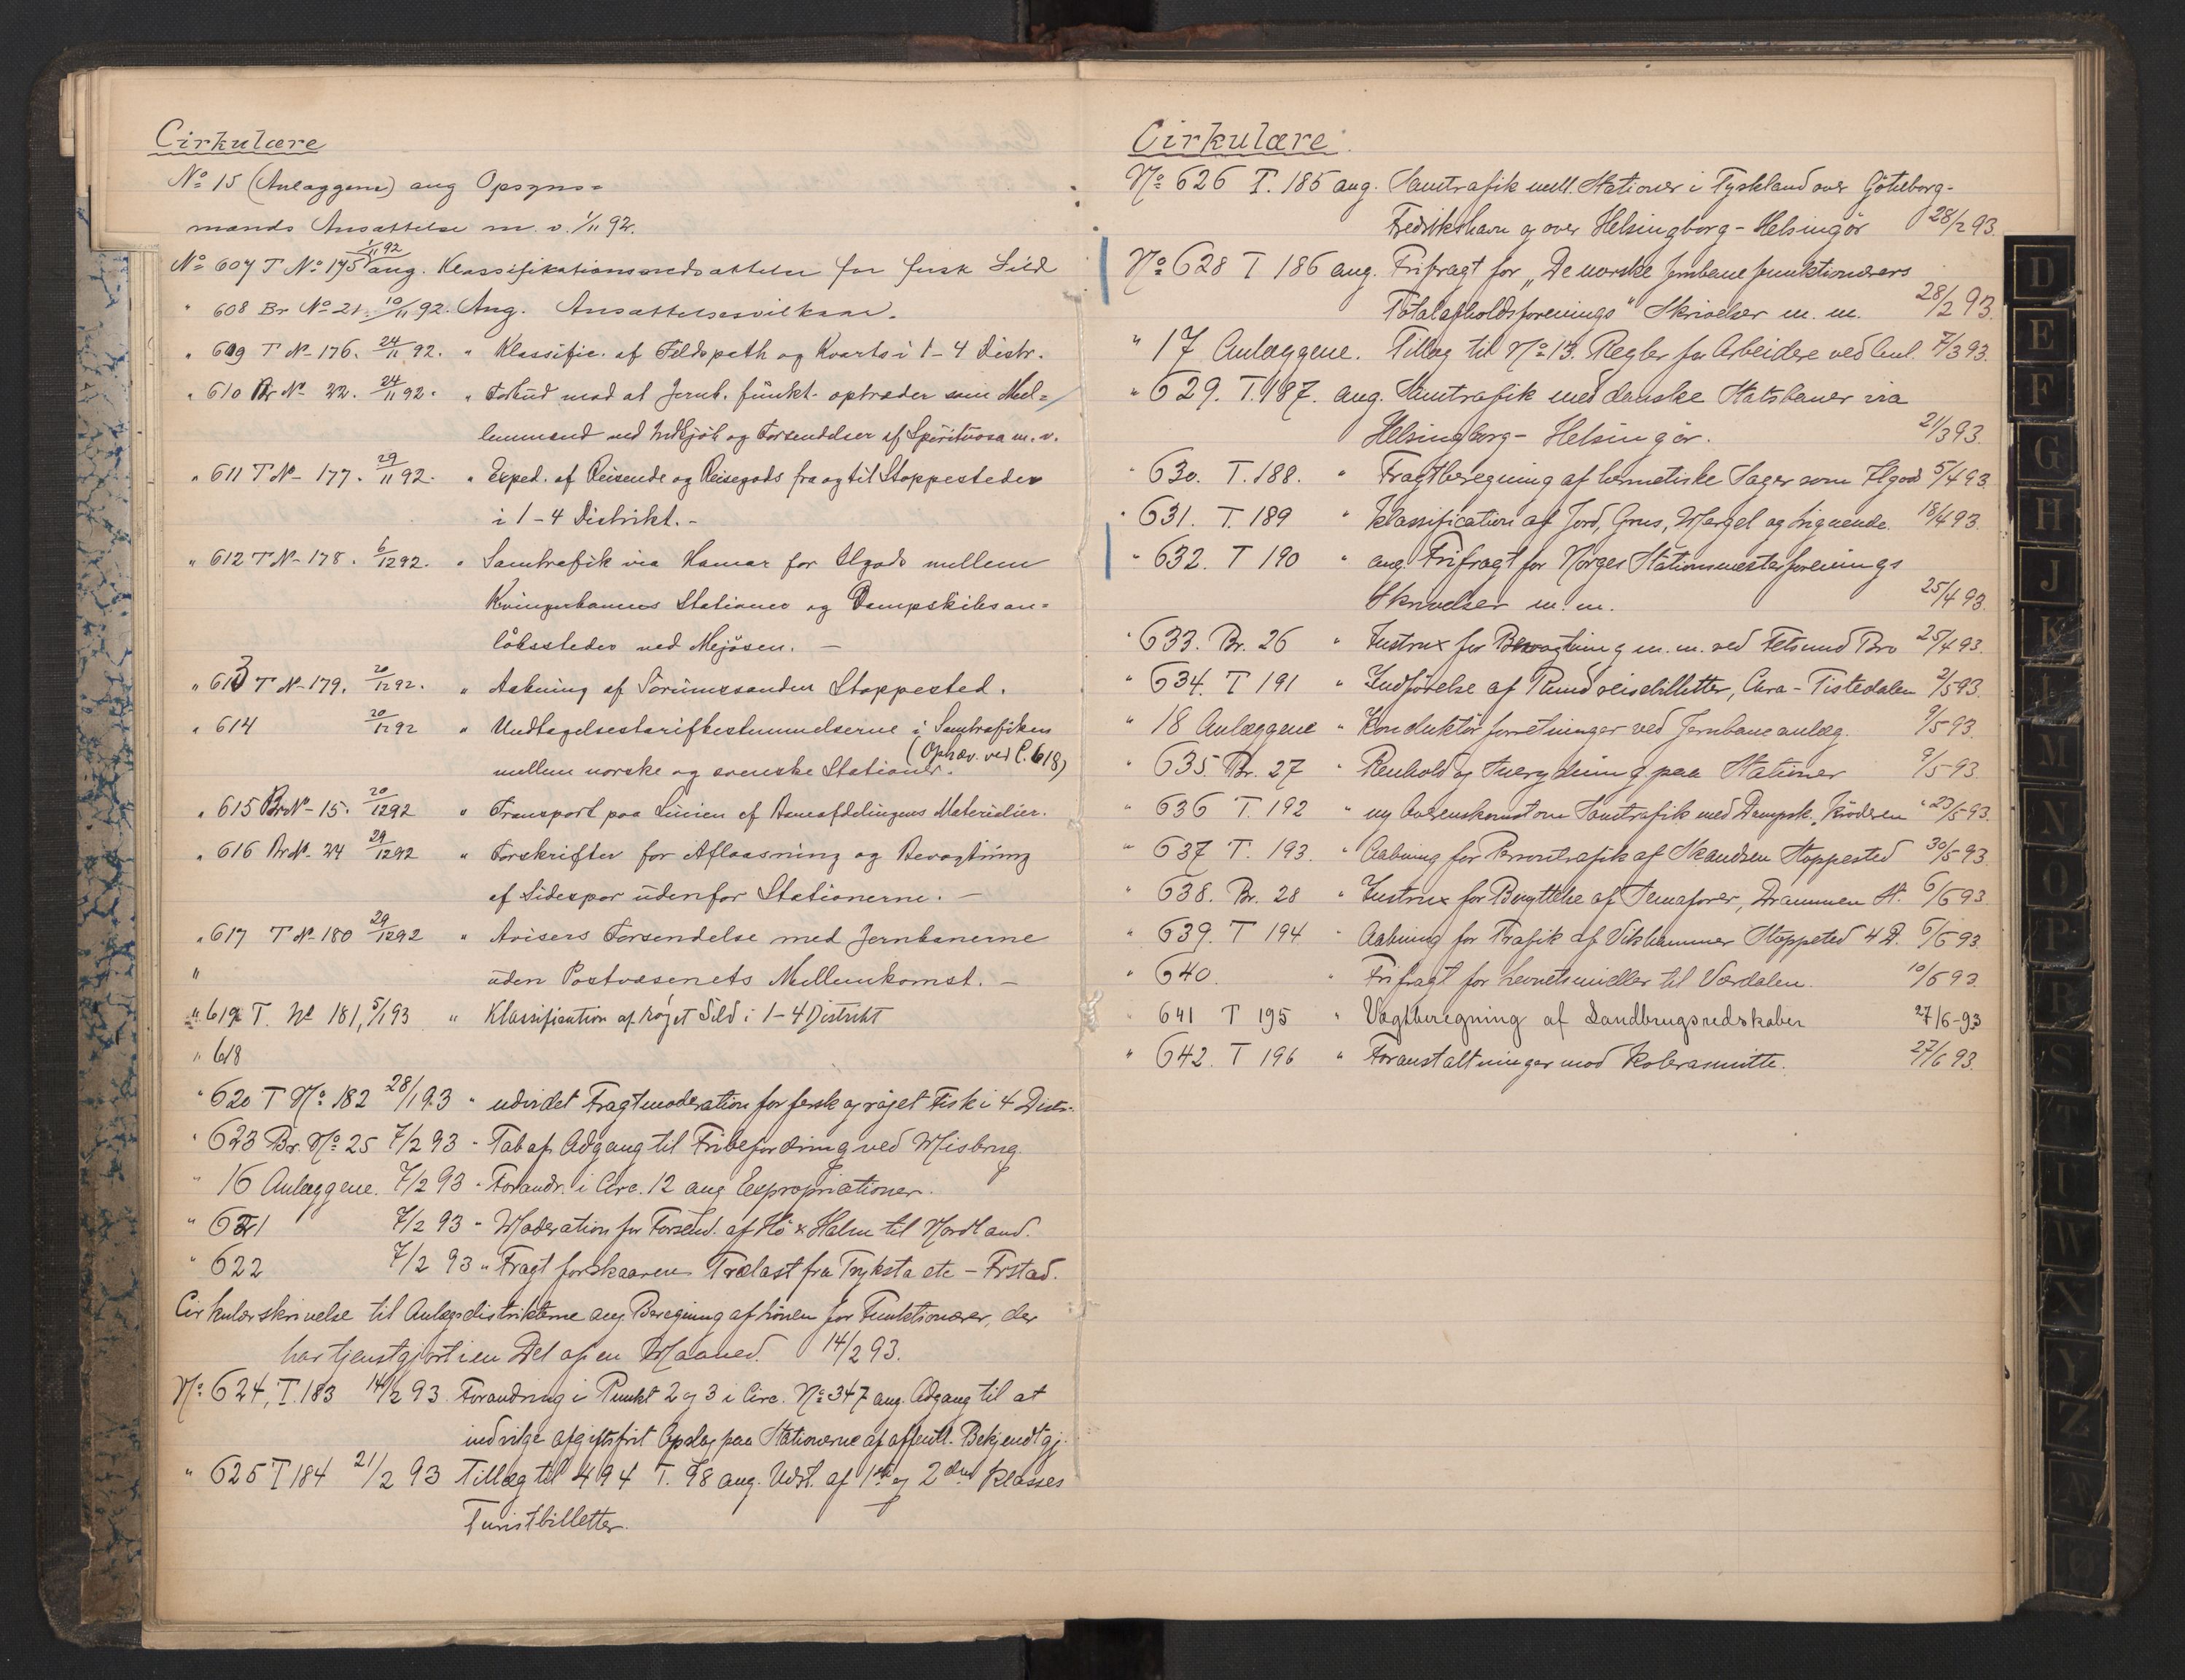 Cirkulære
No 15 (Anlæggene) ang Opsyns=
mands Ansættelse m. v. 1/11 92.
No 607 T No 175 1/11 92 ang. Klassifikationsnedsættelse for fersk Sild
" 608 Br No 21. 10/11 92. Ang. Ansættelsesvilkaar.
" 609 T No 176. 24/11 92. " Klassific. af Feldspath og Kvarts i 1-4 Distr.
" 610 Br No 22. 24/11 92. " Forbud mod at Jernb. funkt. optræder som Mel=
lemmænd ved Indkjøb og Forsendelser af Spirituosa m. v.
" 611 T No 177. 29/11 92. " Exped. af Reisende og Reisegods fra og til Stoppesteder
i 1-4 Distrikt. -
" 612 T No 178. 6/12 92. " Samtrafik via Hamar for Ilgods mellem
Kvingerbanens Stationer og Dampskibsan=
løbssteder ved Mjøsen. -
" 613 T No 179. 20/12 92. " Aabning af Sørumssanden Stoppested.
" 614 20/12 92 " Undtagelsestarifbestemmelserne i Samtrafiken
mellem norske og svenske Stationer. (Ophæv. ved C. 618)
" 615 Br No 15. 20/12 92 " Transport paa Linien af Baneafdelingens Materialier.
" 616 Br No 24 29/12 92 " Forskrifter for Aflaasning og Bevogtning
af Sidespor udenfor Stationerne. -
" 617 T No 180 29/12 92 " Avisers Forsendelse med Jernbanerne
" uden Postvæsenets Mellemkomst. -
" 619 T. No 181, 5/1 93 " Klassification af røget Sild i 1-4 Distrikt
" 618
" 620 T No 182 28/1 93 " udvidet Fragtmoderation for fersk og røget Fisk i 4 Distr.
" 623 Br. No 25 7/2 93 - Tab af Adgang til Fribefordring ved Misbrug.
" 16 Anlæggene. 7/2 93 - Forandr. i Circ. 12 ang Expropriationer.
" 621 7/2 93 - Moderation for Forsend. af Hö & Halm til Nordland.
" 622 7/2 93 " Fragt for skaaren Trælast fra Tryksta etc - Frstad.
Cirkulærskrivelse til Anlægsdistrikterne ang Beregning af Lønen for Funktionærer, der
har tjenstgjort i en Del af en Maaned. 14/2 93.
No 624, T. 183 14/2 93. Forandring i Punkt 2 og 3 i Circ. No 347 ang. Adgang til at
indvilge afgiftsfrit Opslag paa Stationerne af offentl. Bekjendtgj.
" 625 T 184 21/2 93 Tillæg til 494 T. 98 ang. Udst. af 1ste og 2den Klasses
Turistbilletter.
Cirkulære.
No 626 T. 185 ang. Samtrafik mell. Stationer i Tyskland over Göteborg-
Fredrikshavn og over Helsingborg - Helsingör 28/2 93.
No 628 T 186 ang. Frifragt for "De norske Jernbanefunktionærers
Totalafholdsforenings" Skrivelser m. m. 28/2 93.
" 17 Anlæggene. Tillæg til No 13. Regler for Arbeidere ved Anl. 7/3 93.
" 629. T. 187. ang. Samtrafik med danske Statsbaner via
Helsingborg - Helsingör. 21/3 93.
" 630. T. 188. " Fragtberegning af hermetiske Sager som Ilgods 5/4 93.
" 631. T. 189 " Klassification af Jord, Grus, Mergel og lignende. 18/4 93.
" 632. T 190 " ang. Frifragt for Norges Stationsmesterforenings
Skrivelser m. m. 25/4 93.
" 633. Br. 26 " Instrux for Bevogtning m. m. ved Fetsund Bro 25/4 93.
" 634. T 191 " Indförelse af Rundreisebilletter, Chra - Tistedalen 2/5 93.
" 18 Anlæggene " Konduktör forretninger ved Jernbaneanlæg. 9/5 93.
" 635 Br. 27 " Renhold og Snerydning paa Stationer 9/5 93.
" 636 T. 192 " ny Overenskomst om Samtrafik med Dampsk. "Kröderen" 23/5 93.
" 637 T. 193. " Aabning for Persontrafik af Skandsen Stoppested 30/5 93.
" 638. Br. 28 " Instrux for Benyttelse af Semaforer, Drammen St. 6/6 93.
" 639. T 194 " Aabning for Trafik af Vikhammer Stoppested 4 D. 6/6 93.
" 640. " Frifragt for Levnetsmidler til Værdalen. 10/6 93.
" 641 T 195 " Vægtberegning af Landbrugsredskaber 27/6-93
" 642. T 196 " Foranstaltninger mod Kolerasmitte. 27/6 93.
D
E
F
G
H
J
K
L
M
N
O
P
R
S
T
U
W
X
Y
Z
Æ
Ø